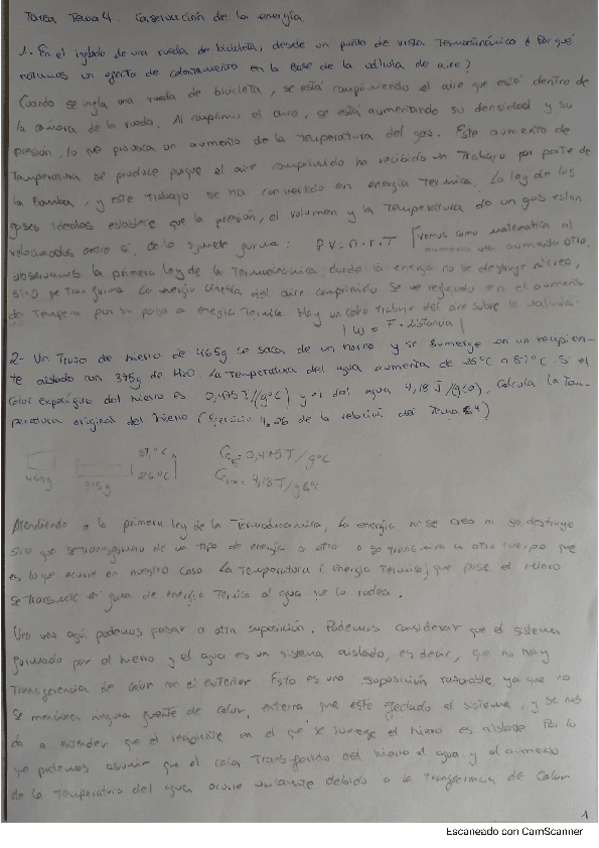 Tarea Tema 4. Conservación de la energía
1. En el inflado de una rueda de bicicleta, desde un punto de vista Termodinámico ¿Por qué
notamos un efecto de calentamiento en la base de la válvula de aire?
Cuando se infla una rueda de bicicleta, se está comprimiendo el aire que está dentro de
la cámara de la rueda. Al comprimir el aire, se está aumentando su densidad y su
presión, lo que provoca un aumento de la Temperatura del gas. Este aumento de
Temperatura se produce porque el aire comprimido ha recibido un Trabajo por parte de
la Bomba, y este Trabajo se ha convertido en energía Termica. La ley de los
gases ideales establece que la presión, el volumen y la Temperatura de un gas estan
relacionados entre si, de la siguiente forma: PV = n·r·T vemos como matematica al
aumenta una aumenta otra.
observamos la primera ley de la Termodinámica, donde la energia no se destruye ni crea,
sino se transforma. La energía cinética del aire comprimido se ve reflejado en el aumento
de Tempera por su paso a energia Termica. Hay un Trabajo del aire sobre la valvula.
| W = F · distancia |
2- Un Trozo de hierro de 465g se saca de un horno y se sumerge en un recipien-
te aislado con 375g de H2O. La Temperatura del agua aumenta de 26°C a 87°C. Si el
calor específico del hierro es 0,475 J/(g°C) y el del agua 4,18 J/(g°C), calcula la Tem-
peratura original del hierro (Ejercicio 4.26 de la relación del Tema 4)
465g 375g 87°C 26°C
0,475 J/g°C
4,18 J/g°C
Atendiendo a la primera ley de la Termodinamica, la energía ni se crea ni se destruye
sino que se transforma de un tipo de energía a otro o se transmite a otro cuerpo que
es lo que ocurre en nuestro caso. La Temperatura (Energía Termica) que pose el Hierro
se transmite en forma de Energía Termica al agua que lo rodea.
Una vez aquí podemos pasar a otra suposición. Podemos considerar que el sistema
formado por el hierro y el agua es un sistema aislado, es decir, que no hay
transferencia de calor con el exterior. Esto es una suposición razonable, ya que no
se menciona ninguna fuente de calor, externa que este afectado al sistema, y se nos
da a entender que el recipiente en el que se sumerge el hierro es aislado. Por lo
que podemos asumir que el calor transferido del hierro al agua y el aumento
de la Temperatura del agua ocurre unicamente debido a la Transferencia de calor
1
Escaneado con CamScanner